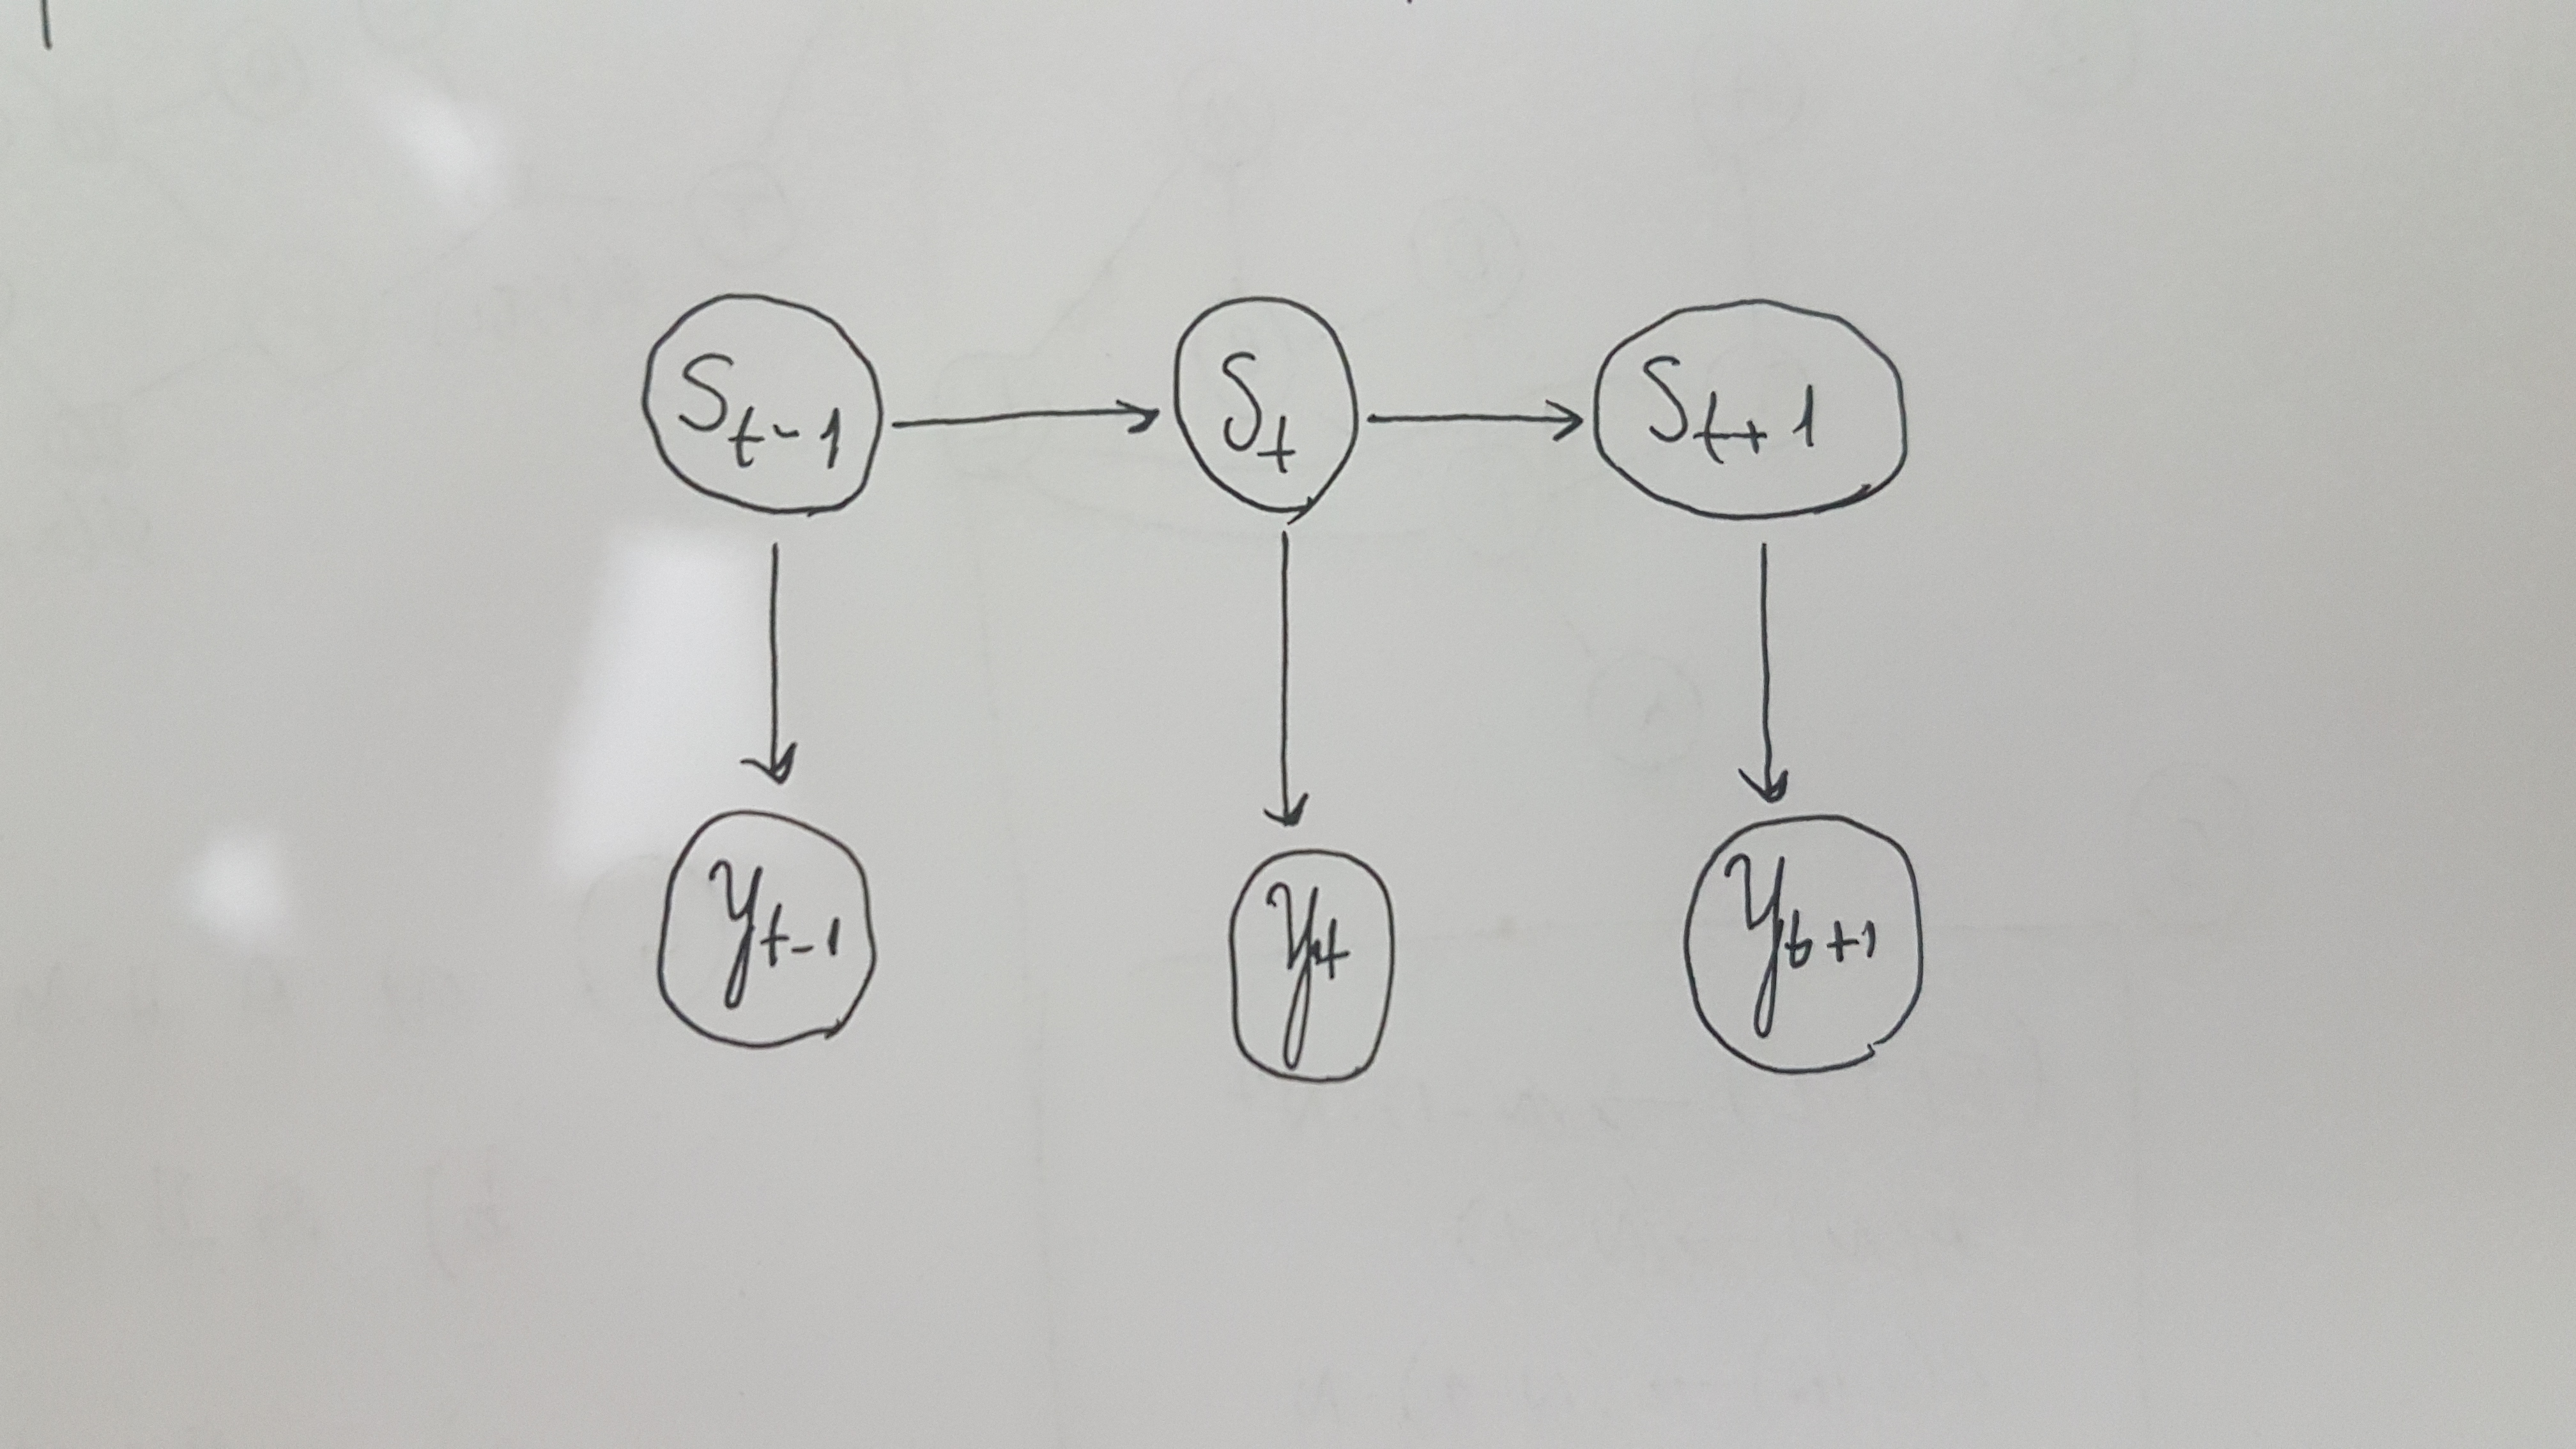 S_{t-1} S_t S_{t+1}
y_{t-1} y_t y_{t+1}